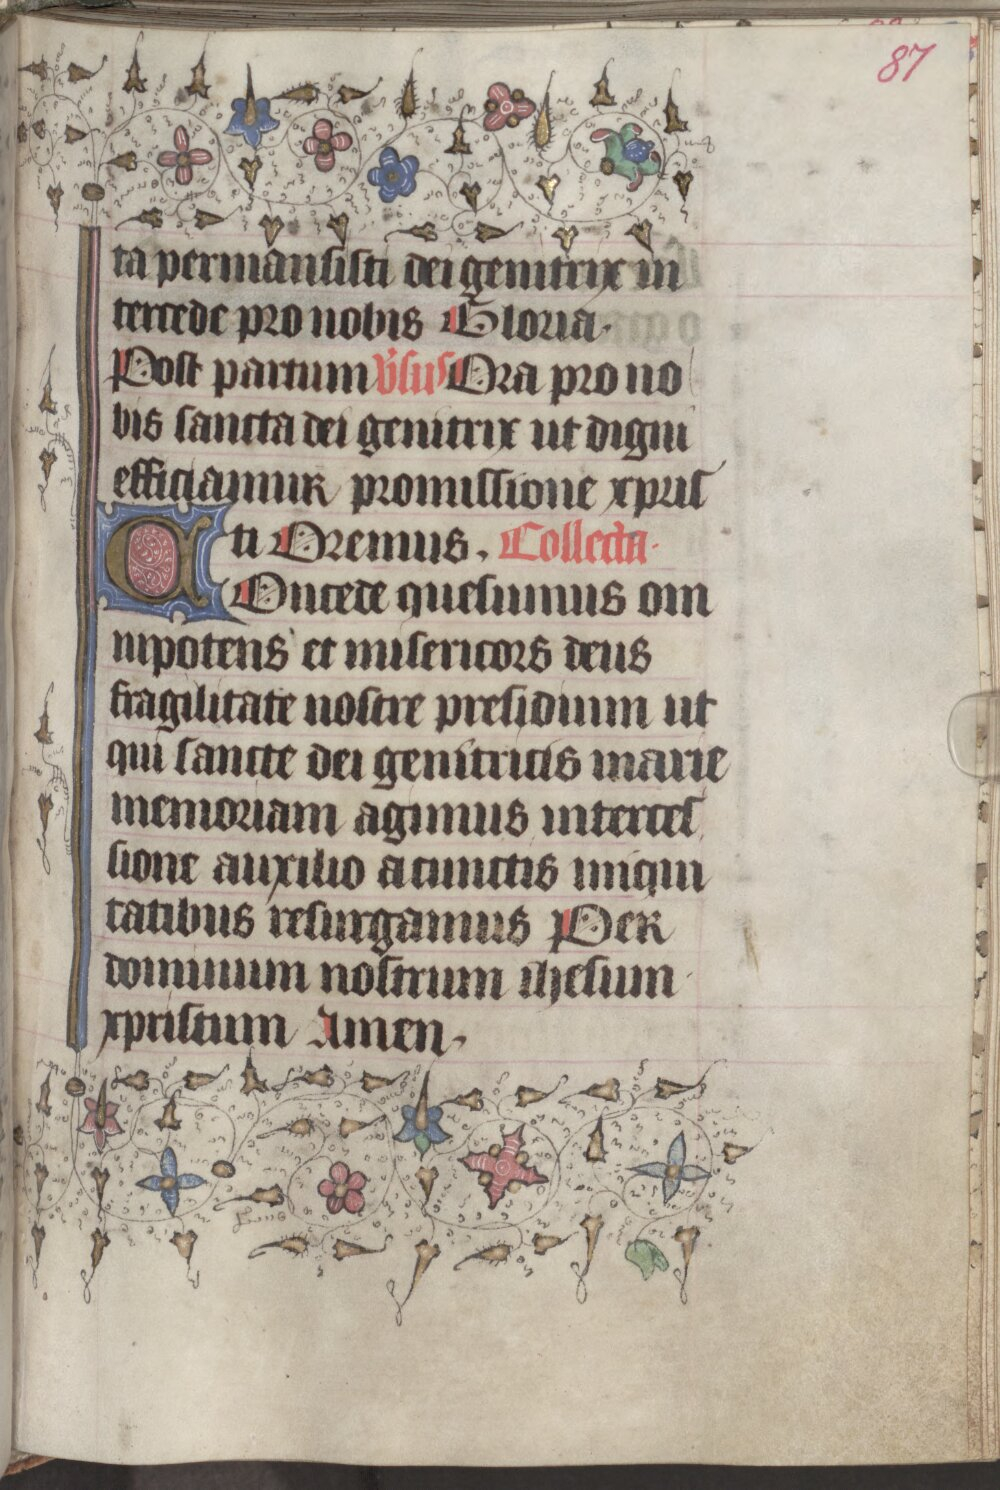 87
ta permansisti dei genitrix in
tercede pro nobis Gloria.
Post partum v̕sus Ora pro no
bis sancta dei genitrix ut digni
efficiamur promissione xpris
ti Oremus. Collecta.
Concede quesumus om
nipotens et misericors deus
fragilitate nostre presidium ut
qui sancte dei genitricis marie
memoriam agimus interces
sione auxilio a cunctis iniqui
tatibus resurgamus Per
dominum nostrum ihesum
xpristum Amen.